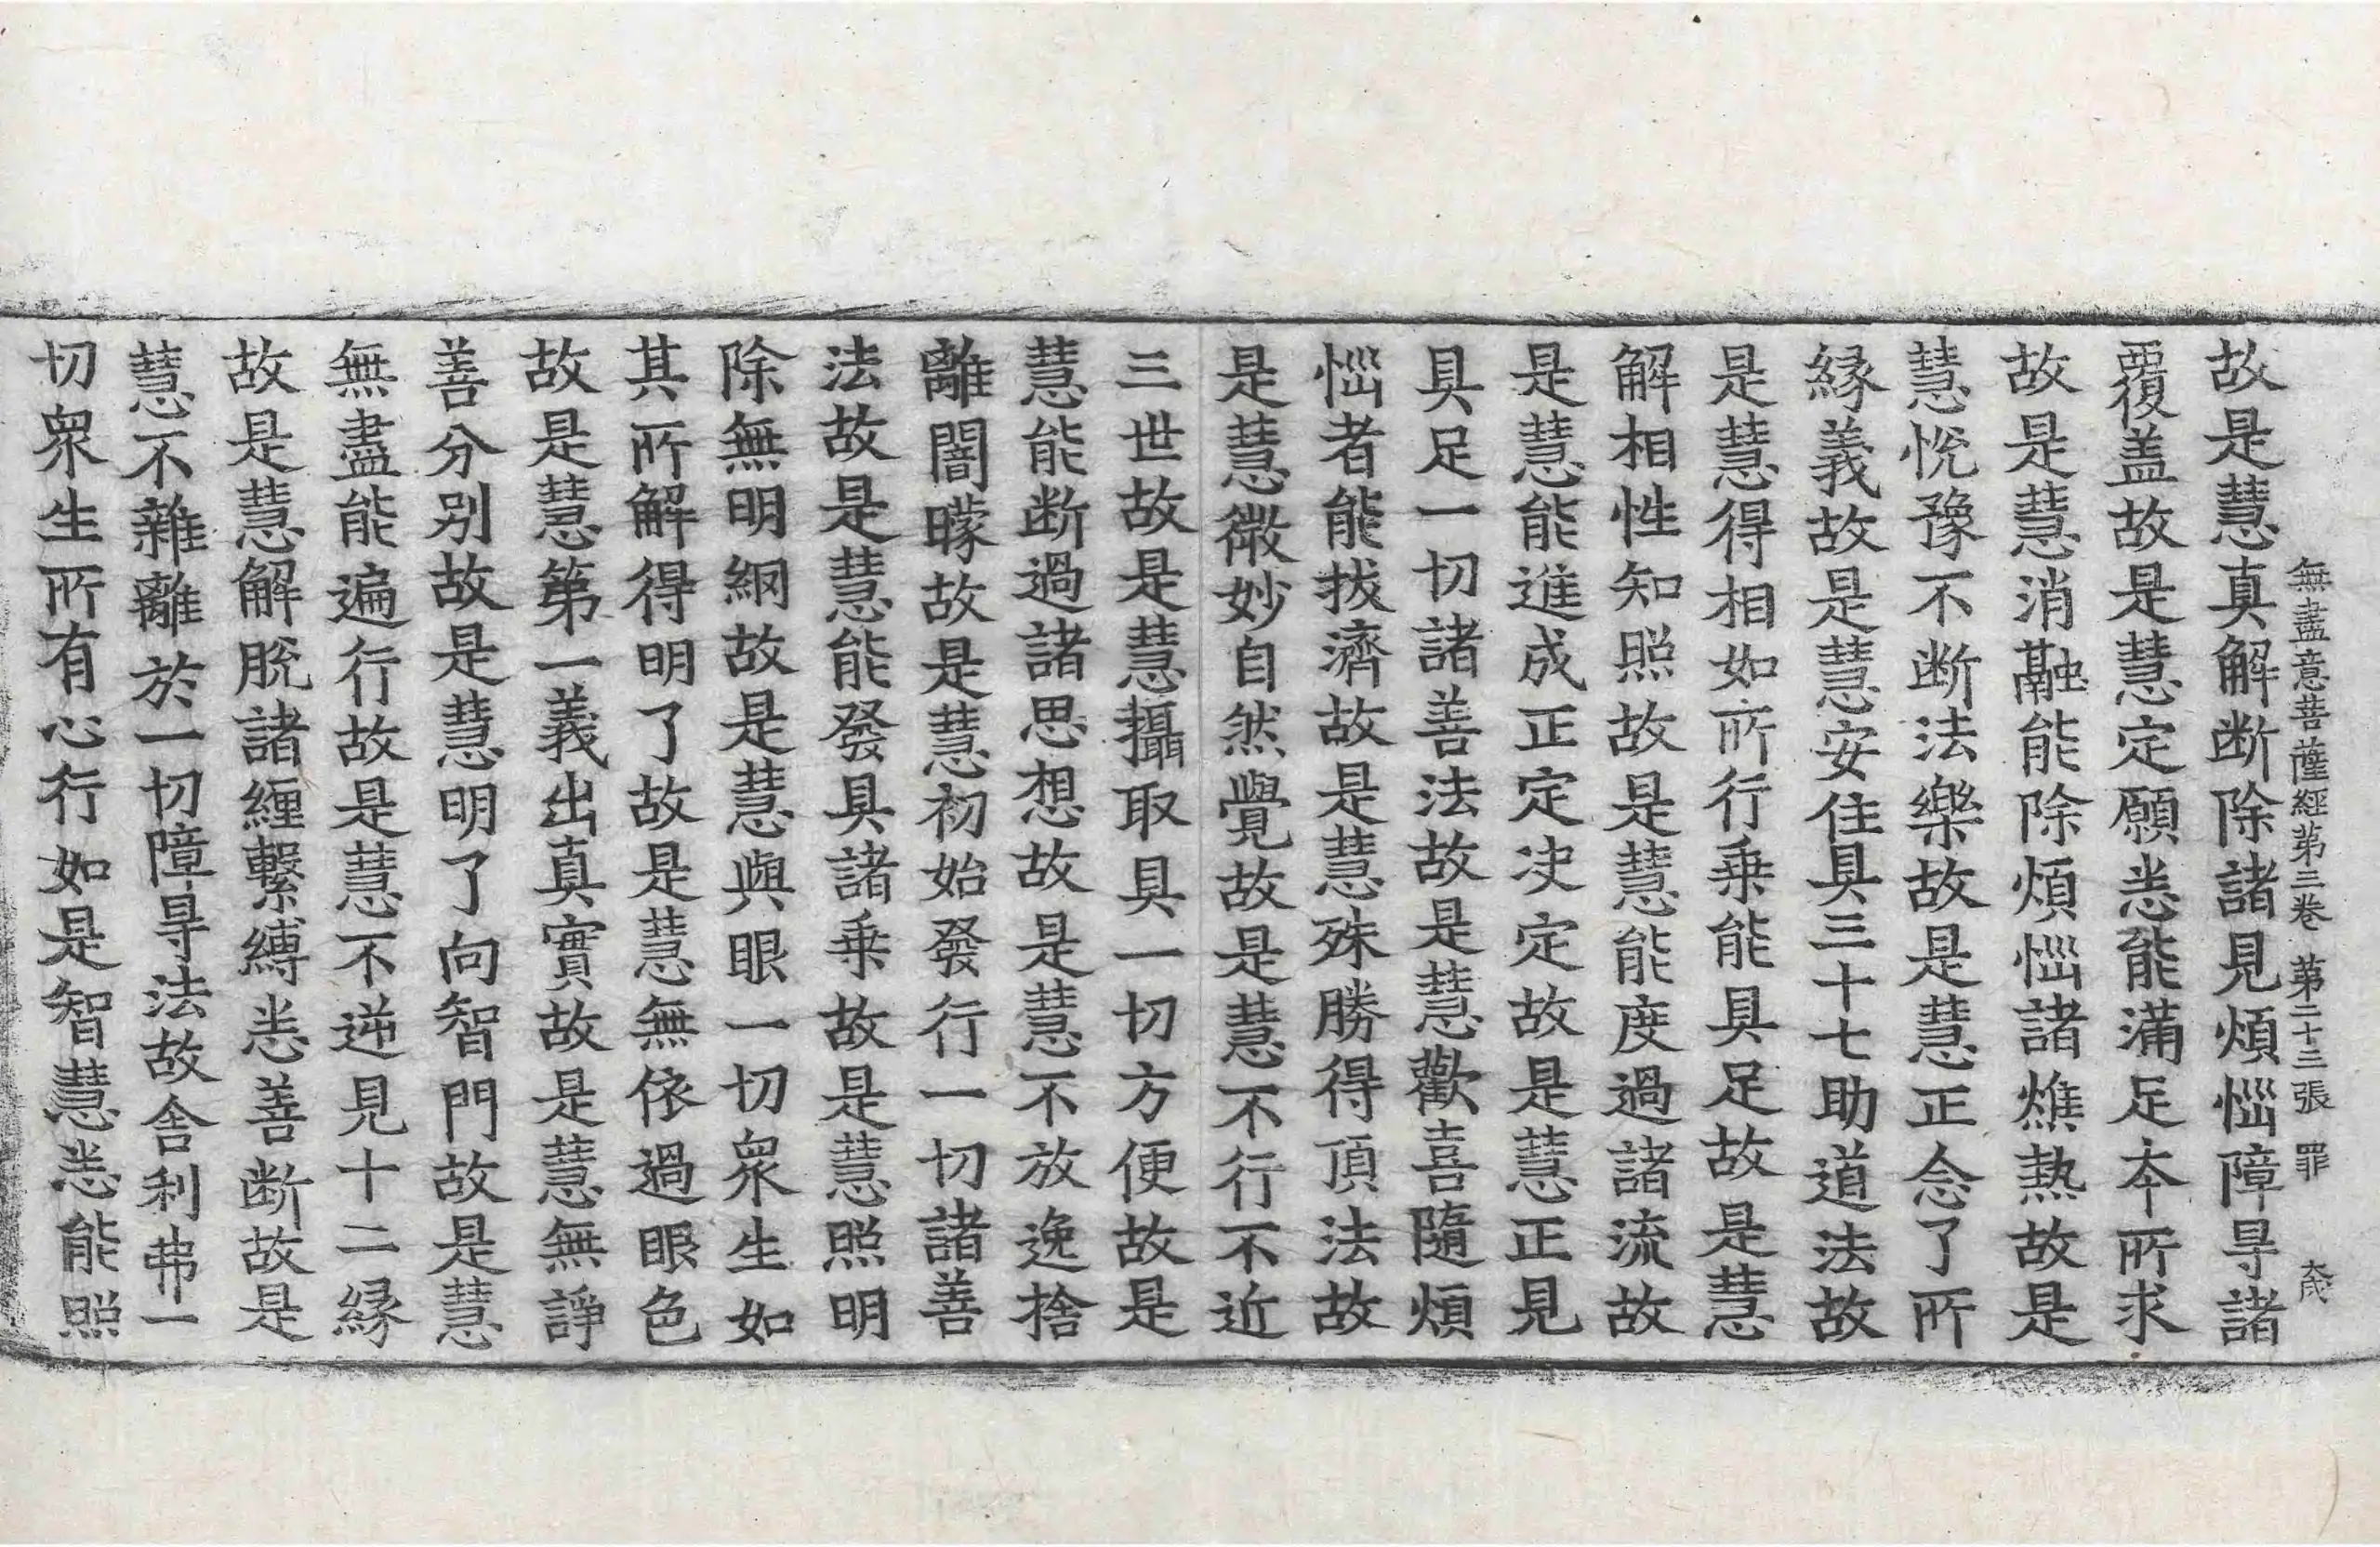 無盡意菩薩經第三卷 第二十三張 罪
故是慧真解断除諸見煩惱障㝵諸
覆盖故是慧定願悉能滿足夲所求
故是慧消融能除煩惱諸燋熱故是
慧恱豫不断法樂故是慧正念了所
縁義故是慧安住具三十七助道法故
是慧得相如所行乗能具足故是慧
解相性知照故是慧能度過諸流故
是慧能進成正定决定故是慧正見
具足一切諸善法故是慧歡喜隨煩
惱者能拔濟故是慧殊勝得頂法故
是慧微妙自然覺故是慧不行不近
三世故是慧攝取具一切方便故是
慧能断過諸思想故是慧不放逸捨
離闇曚故是慧初始發行一切諸善
法故是慧能發具諸乗故是慧照明
除無明網故是慧與眼一切衆生如
其所解得明了故是慧無依過眼色
故是慧第一義出真實故是慧無諍
善分别故是慧明了向智門故是慧
無盡能遍行故是慧不逆見十二縁
故是慧解脱諸纏繫縛悉善断故是
慧不雜離於一切障㝵法故舎利弗一
切衆生所有心行如是智慧悉能照